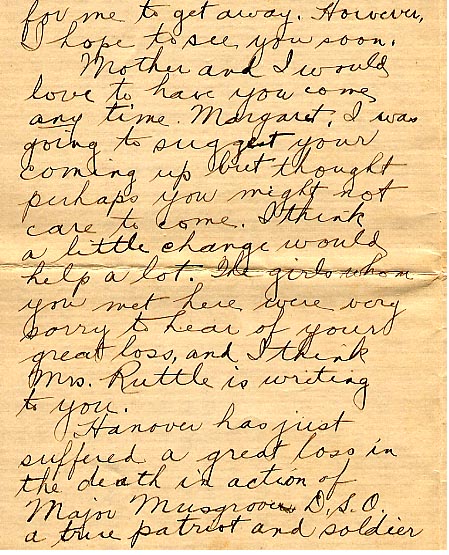 for me to get away. However,
I hope to see you soon.
Mother and I would
love to have you come
any time. Margaret, I was
going to suggest your
coming up but thought
perhaps you might not
care to come. I think
a little change would
help a lot. The girls whom
you met here were very
sorry to hear of your
great loss, and I think
Mrs. Ruttle is writing
to you.
Hanover has just
suffered a great loss in
the death in action of
Major Musgrove D.S.O.
a true patriot and soldier